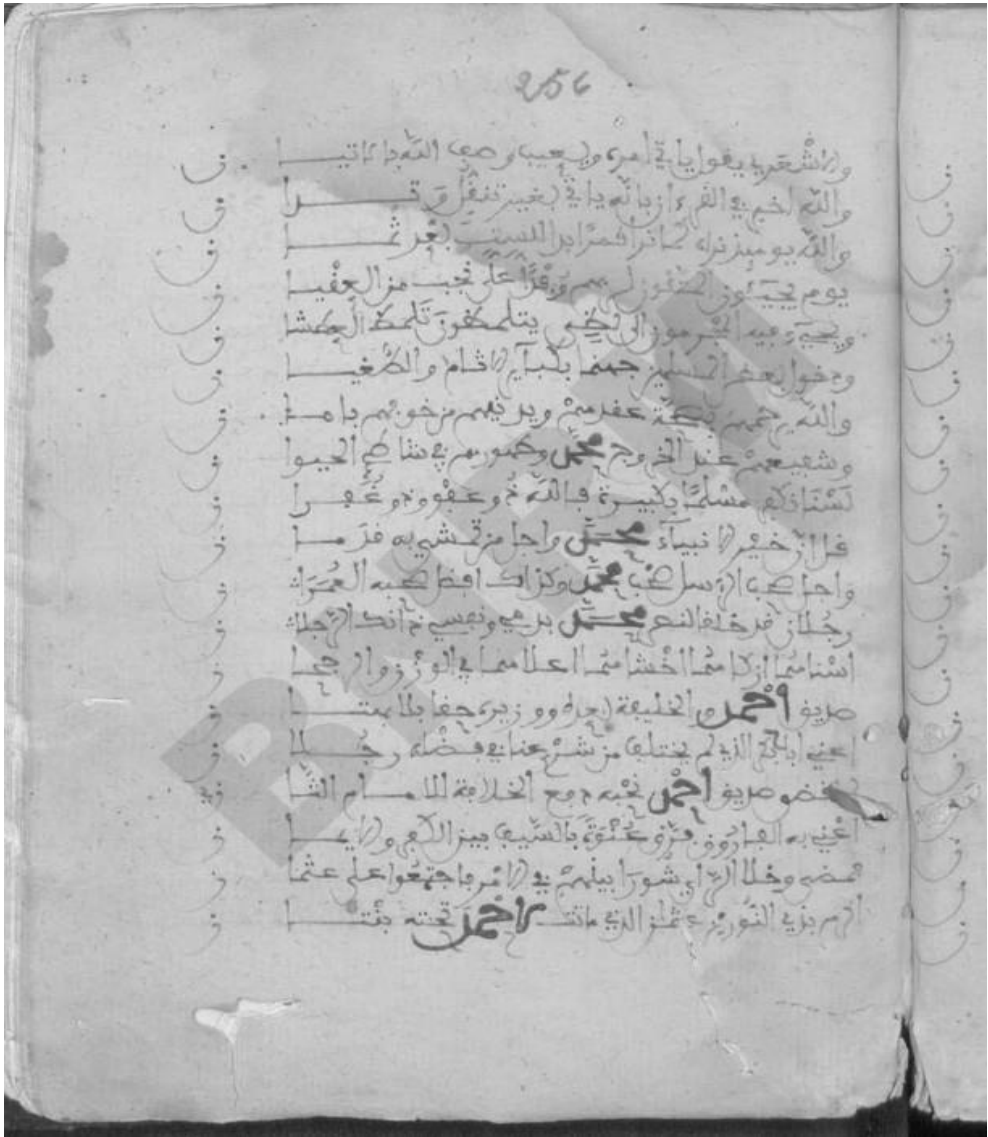 256
والاشعري يقول ياتي امره ويعيب وصف الله بالاتيا ن
والله اخبر في القرءان بانه ياتي بغير تنقل وتدا ن
والله يوميذ نراه كما نرا قمرًا بدا للست بعد ثما ن
يوم يجيء المتقون لربهم وفدًا على نجب من العقيا ن
ويجيء فيه المجرمون الى لظى يتلمظون تلمظ العطشا ن
ودخول بعض المسلمين جهنما بكبآير الاثام والطغيا ن
والله يرحمهم بصحة عقدهم ويبدلهم من خوفهم باما ن
وشفيعهم عند الخروج محمد وطهورهم في شاطئ الحيوا ن
مسلمًا بكبيرة فالله ذو عفو وذو غفرا ن
قل ان خير الانبيآء محمد واجل من تمشي به قدما ن
واجل صحب الرسل صحب محمد وكذاك افضل صحبه العمرا ن
رجلان قد خلقا لنصر محمد بدمي ونفسي ذانك الرجلا ن
اسناهما ازكاهما اخشاهما اعلاهما في الوزن والرجحا ن
صديق احمد والخليفة بعده ووزيره حقا بلا بهتا ن
اعني ابا بكر الذي لم يختلف من شرعنا في فضله رجلا ن
صديق احمد نحبه دفع الخلافة للامام الثا ني
اعني به الفاروق فرق عنوة بالسيف بين الكفر والايما ن
ومضى وخلا الراي شورا بينهم في الامر فاجتمعوا على عثما ن
اكرم بذي النورين عثمان الذي كانت لاحمد تحته بنتا ن